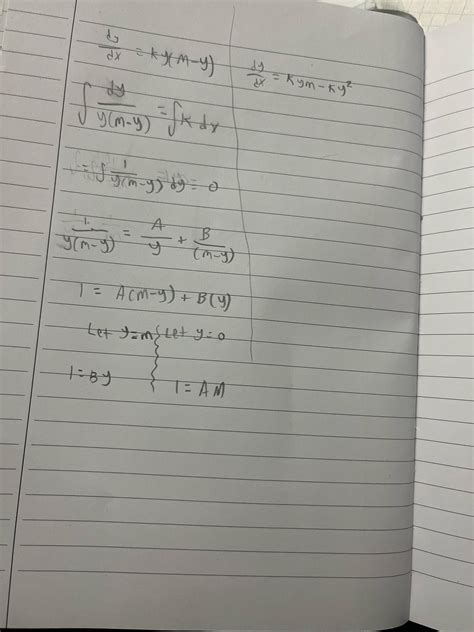 dy/dx = ky(m-y)
dy/dx = kym - ky²
∫ dy/y(m-y) = ∫k dx
= ∫ 1/y(m-y) dy = 0
1/y(m-y) = A/y + B/(m-y)
1 = A(m-y) + B(y)
Let y=m
Let y=0
1=By
1=AM